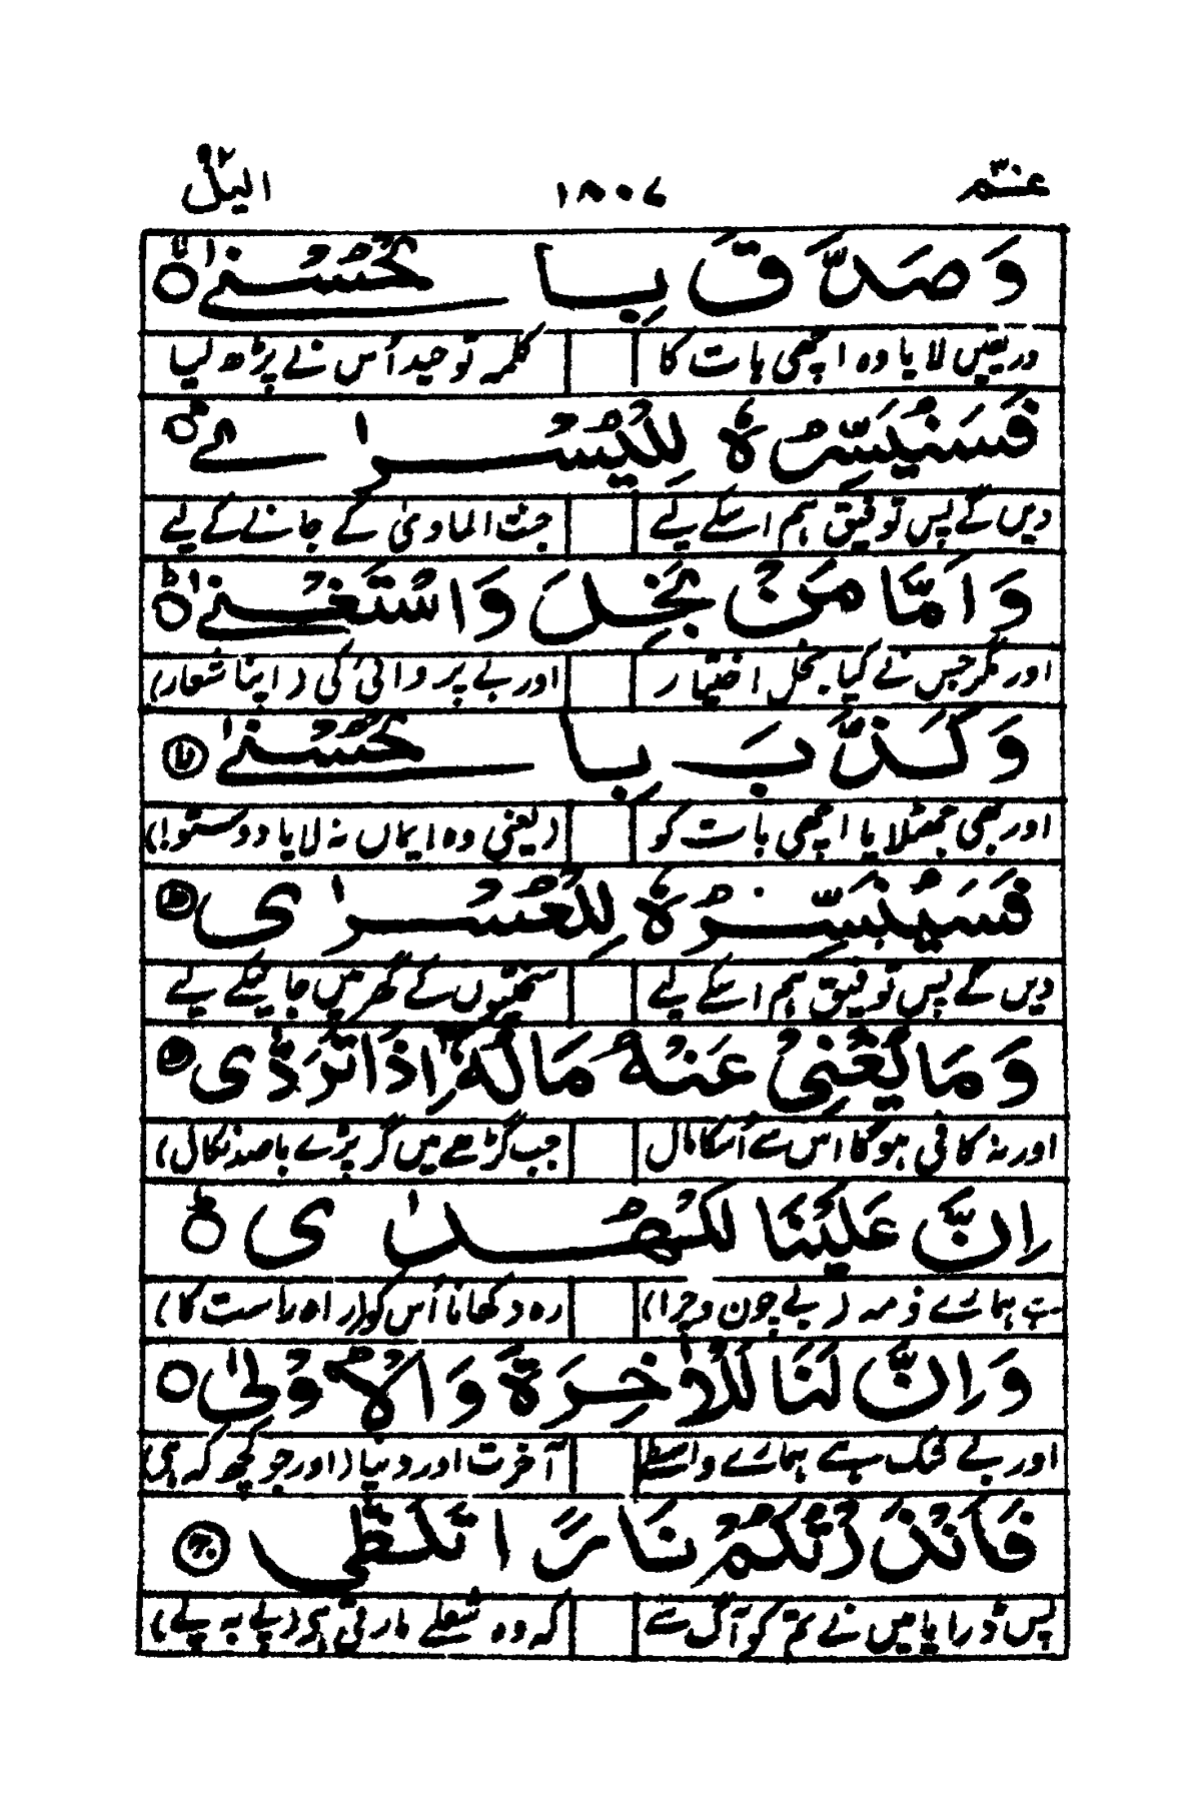 عم ٣٠ ١٨٠٧ اليل ٩٢
وَصَدَّقَ بِالْحُسْنٰى ۙ
اور یقیں لایا وہ اچھی بات کا کلمہ توحید اُس نے پڑھ لیا
فَسَنُيَسِّرُهٗ لِلْيُسْرٰى ؕ
دیں گے پس توفیق ہم اسکے لیے جنت الماویٰ کے جانے کے لیے
وَاَمَّا مَنْۢ بَخِلَ وَاسْتَغْنٰى ۙ
اور مگر جس نے کیا بخل اختیار اور بے پروائی کی (اپنا شعار)
وَكَذَّبَ بِالْحُسْنٰى ۙ
اور بھی جھٹلایا اچھی بات کو (یعنی وہ ایماں نہ لایا دوستو!)
فَسَنُيَسِّرُهٗ لِلْعُسْرٰى ؕ
دیں گے پس توفیق ہم اسکے لیے سختیوں کے گھر میں جانیکے لیے
وَمَا يُغْنِىْ عَنْهُ مَالُهٗٓ اِذَا تَرَدّٰى ؕ
اور نہ کافی ہوگا اس سے اُسکا مال جب گڑھے میں گر پڑے باصد نکال)
اِنَّ عَلَيْنَا لَلْهُدٰى ۖ
ہے ہمارے ذمہ (بے چون و چرا) رہ دکھانا اُس کو (راہ راست کا)
وَاِنَّ لَنَا لَلْاٰخِرَةَ وَالْاُوْلٰى
اور بے شک ہے ہمارے واسطے آخرت اور دنیا (اور جو کچھ کہ ہی)
فَاَنْذَرْتُكُمْ نَارًا تَلَظّٰى ۚ
پس ڈرایا میں نے تم کو آگ سے کہ وہ شعلے مارتی ہی (پے بہ پے)